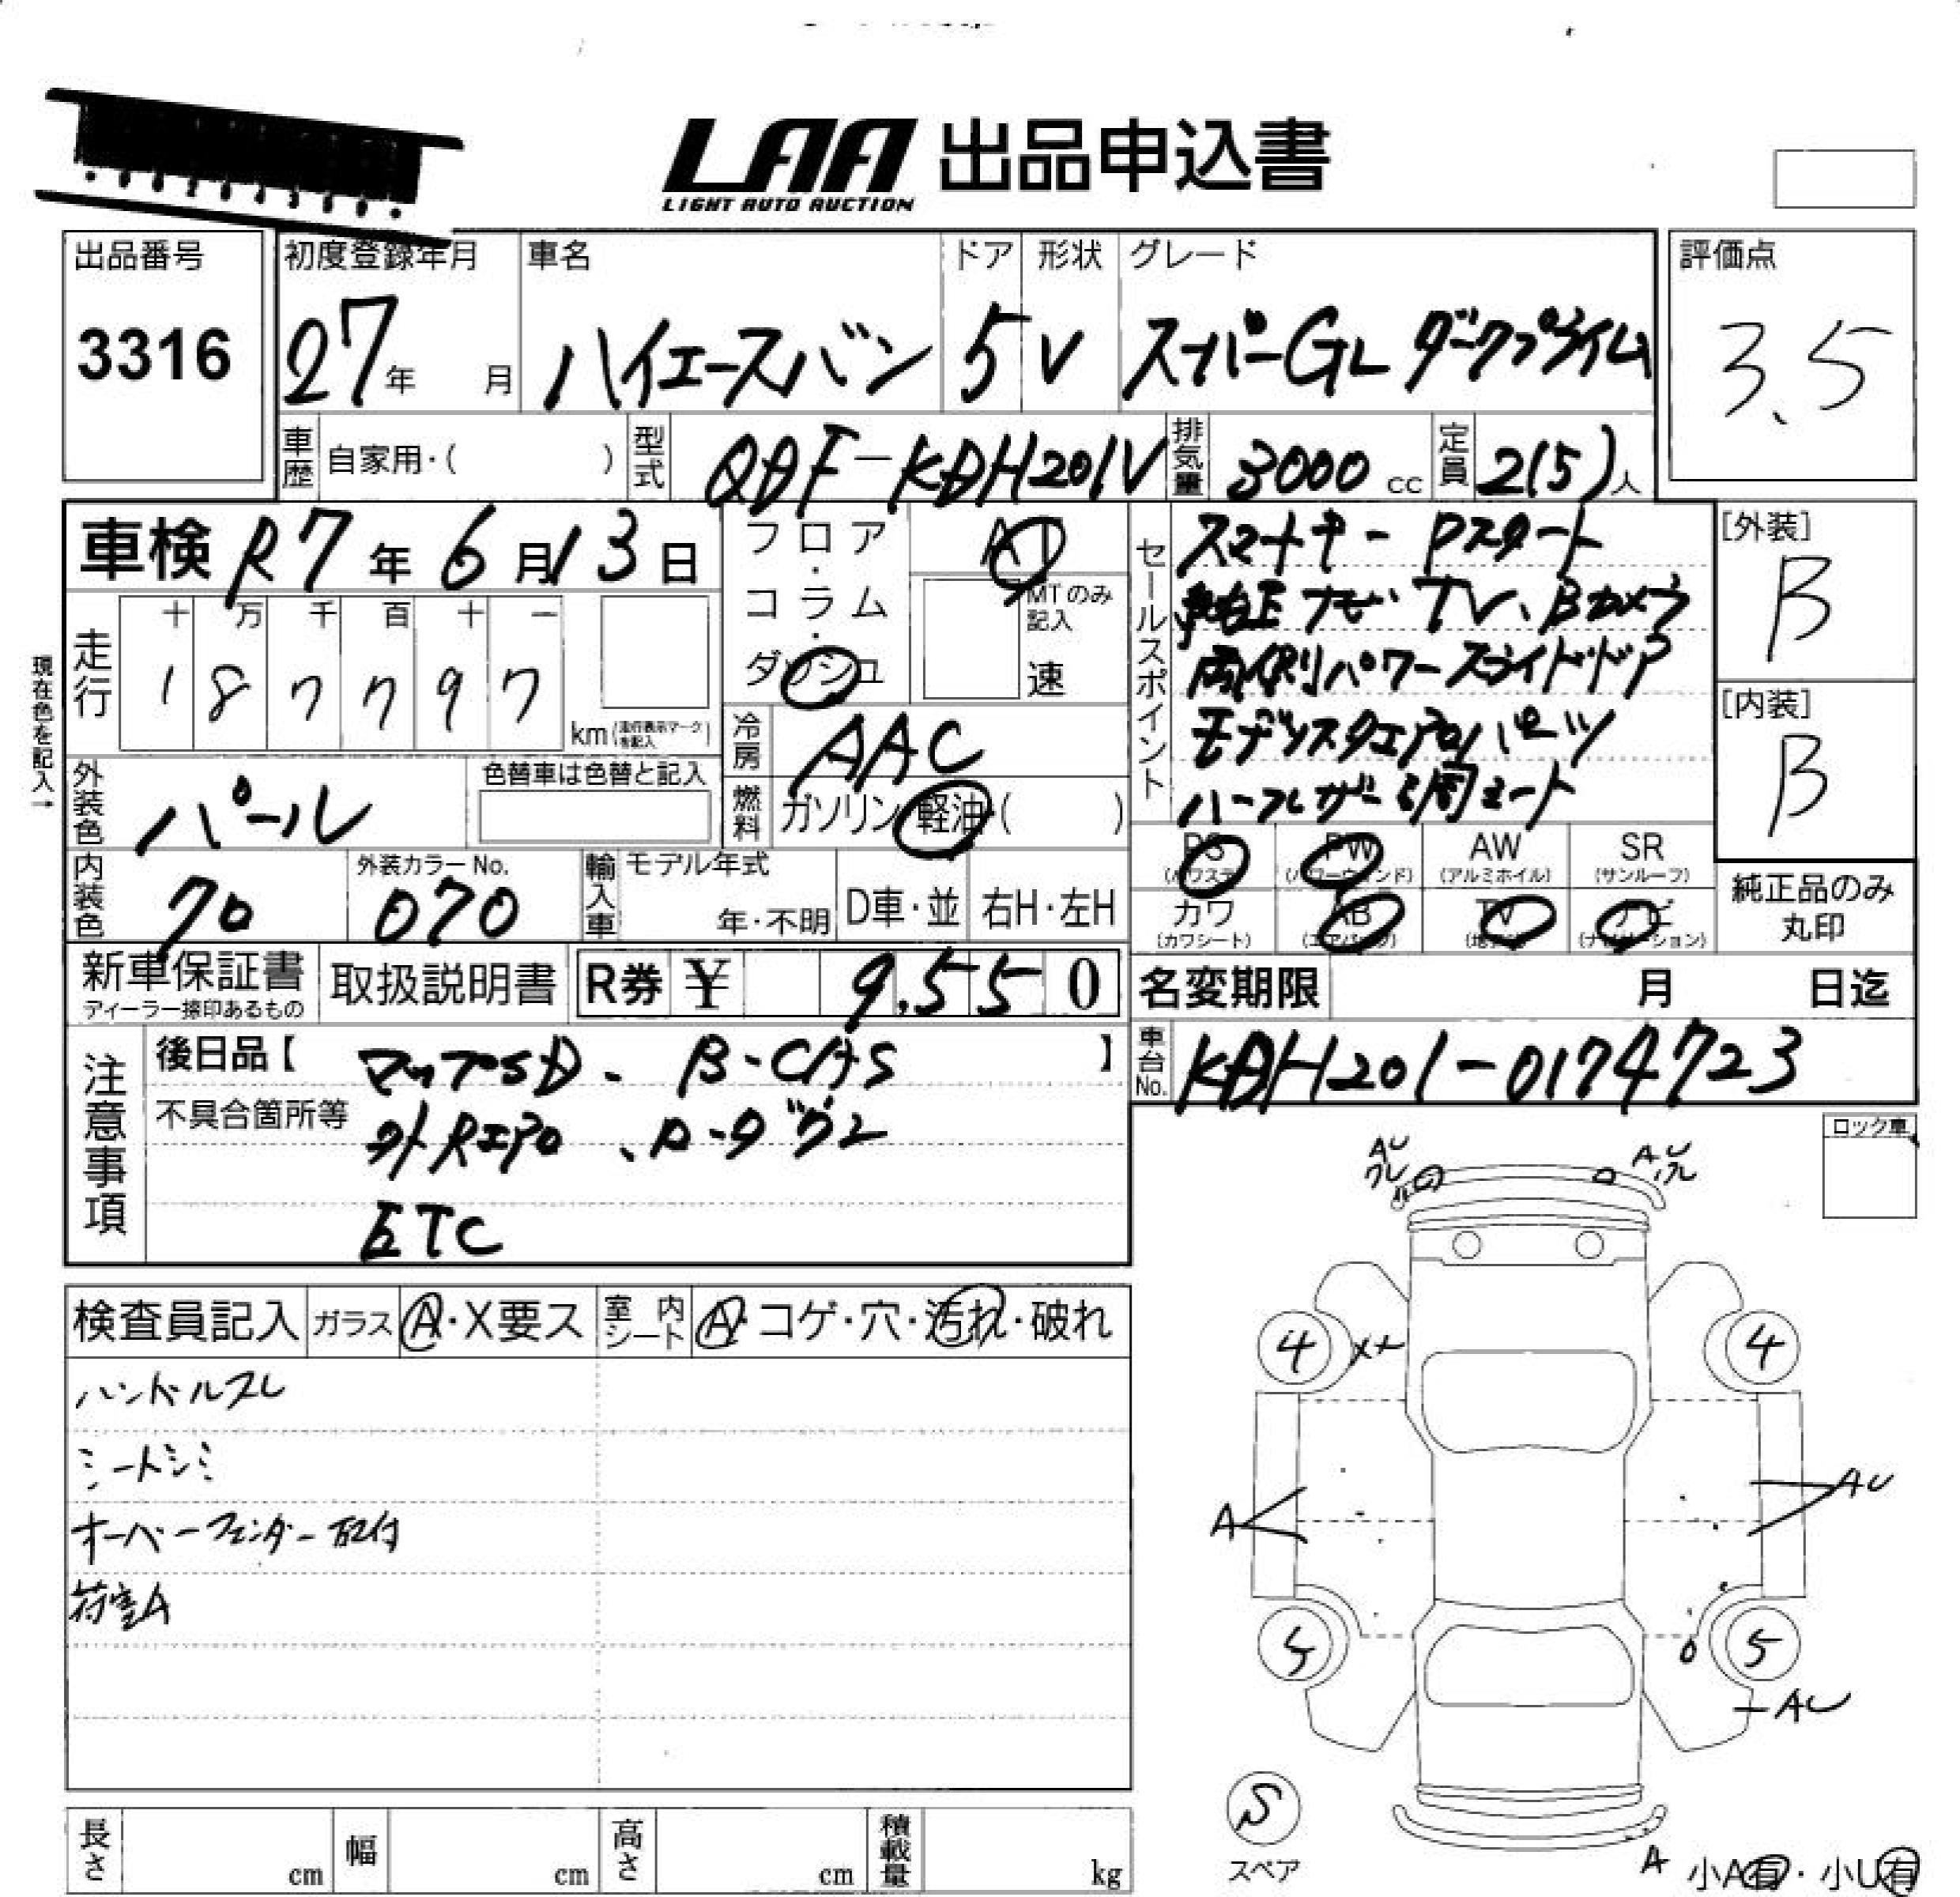 LAA 出品申込書
LIGHT AUTO AUCTION
出品番号
3316
初度登録年月
27年 月
車名
ハイエースバン
ドア
5
形状
V
グレード
スーパーGL ダークプライム
評価点
3.5
車歴 自家用・( )
型式 QDF-KDH201V
排気量 3000 cc
定員 2(5)人
車検 R7年6月13日
フロア・コラム・ダッシュ
AT
MTのみ記入
速
セールスポイント
スマートキー Pスタート
純正ナビ・TV、Bカメラ
両側パワースライドドア
モデリスタエアロパーツ
ハーフレザー シート
[外装]
B
[内装]
B
現在色を記入→
走行
十 万 千 百 十 一
1 8 7 7 9 7
km(走行表示マークを記入)
冷房 AAC
燃料 ガソリン・軽油・( )
外装色 パール
色替車は色替と記入
内装色 70
外装カラーNo.
070
輸入車 モデル年式
年・不明
D車・並
右H・左H
PS (パワステ)
PW (パワーウィンド)
AW (アルミホイル)
SR (サンルーフ)
カワ (カワシート)
AB (エアバッグ)
TV
ナビ (ナビゲーション)
純正品のみ丸印
新車保証書
ディーラー捺印あるもの
取扱説明書
R券 ¥ 9,550
名変期限 月 日迄
注意事項
後日品【 マップSD、B-CAS 】
不具合箇所等
外Rエアロ
ETC
車台No. KDH201-0174723
ロック車
検査員記入
ガラス A・X要ス
室内シート A・コゲ・穴・汚れ・破れ
ハンドルスレ
シートシミ
オーバーフェンダー取付
荷室A
AU
ワレ
AU
ワレ
4
X+
4
A
AU
5
5
AU
S
スペア
A
小A有・小U有
長さ cm
幅 cm
高さ cm
積載量 kg